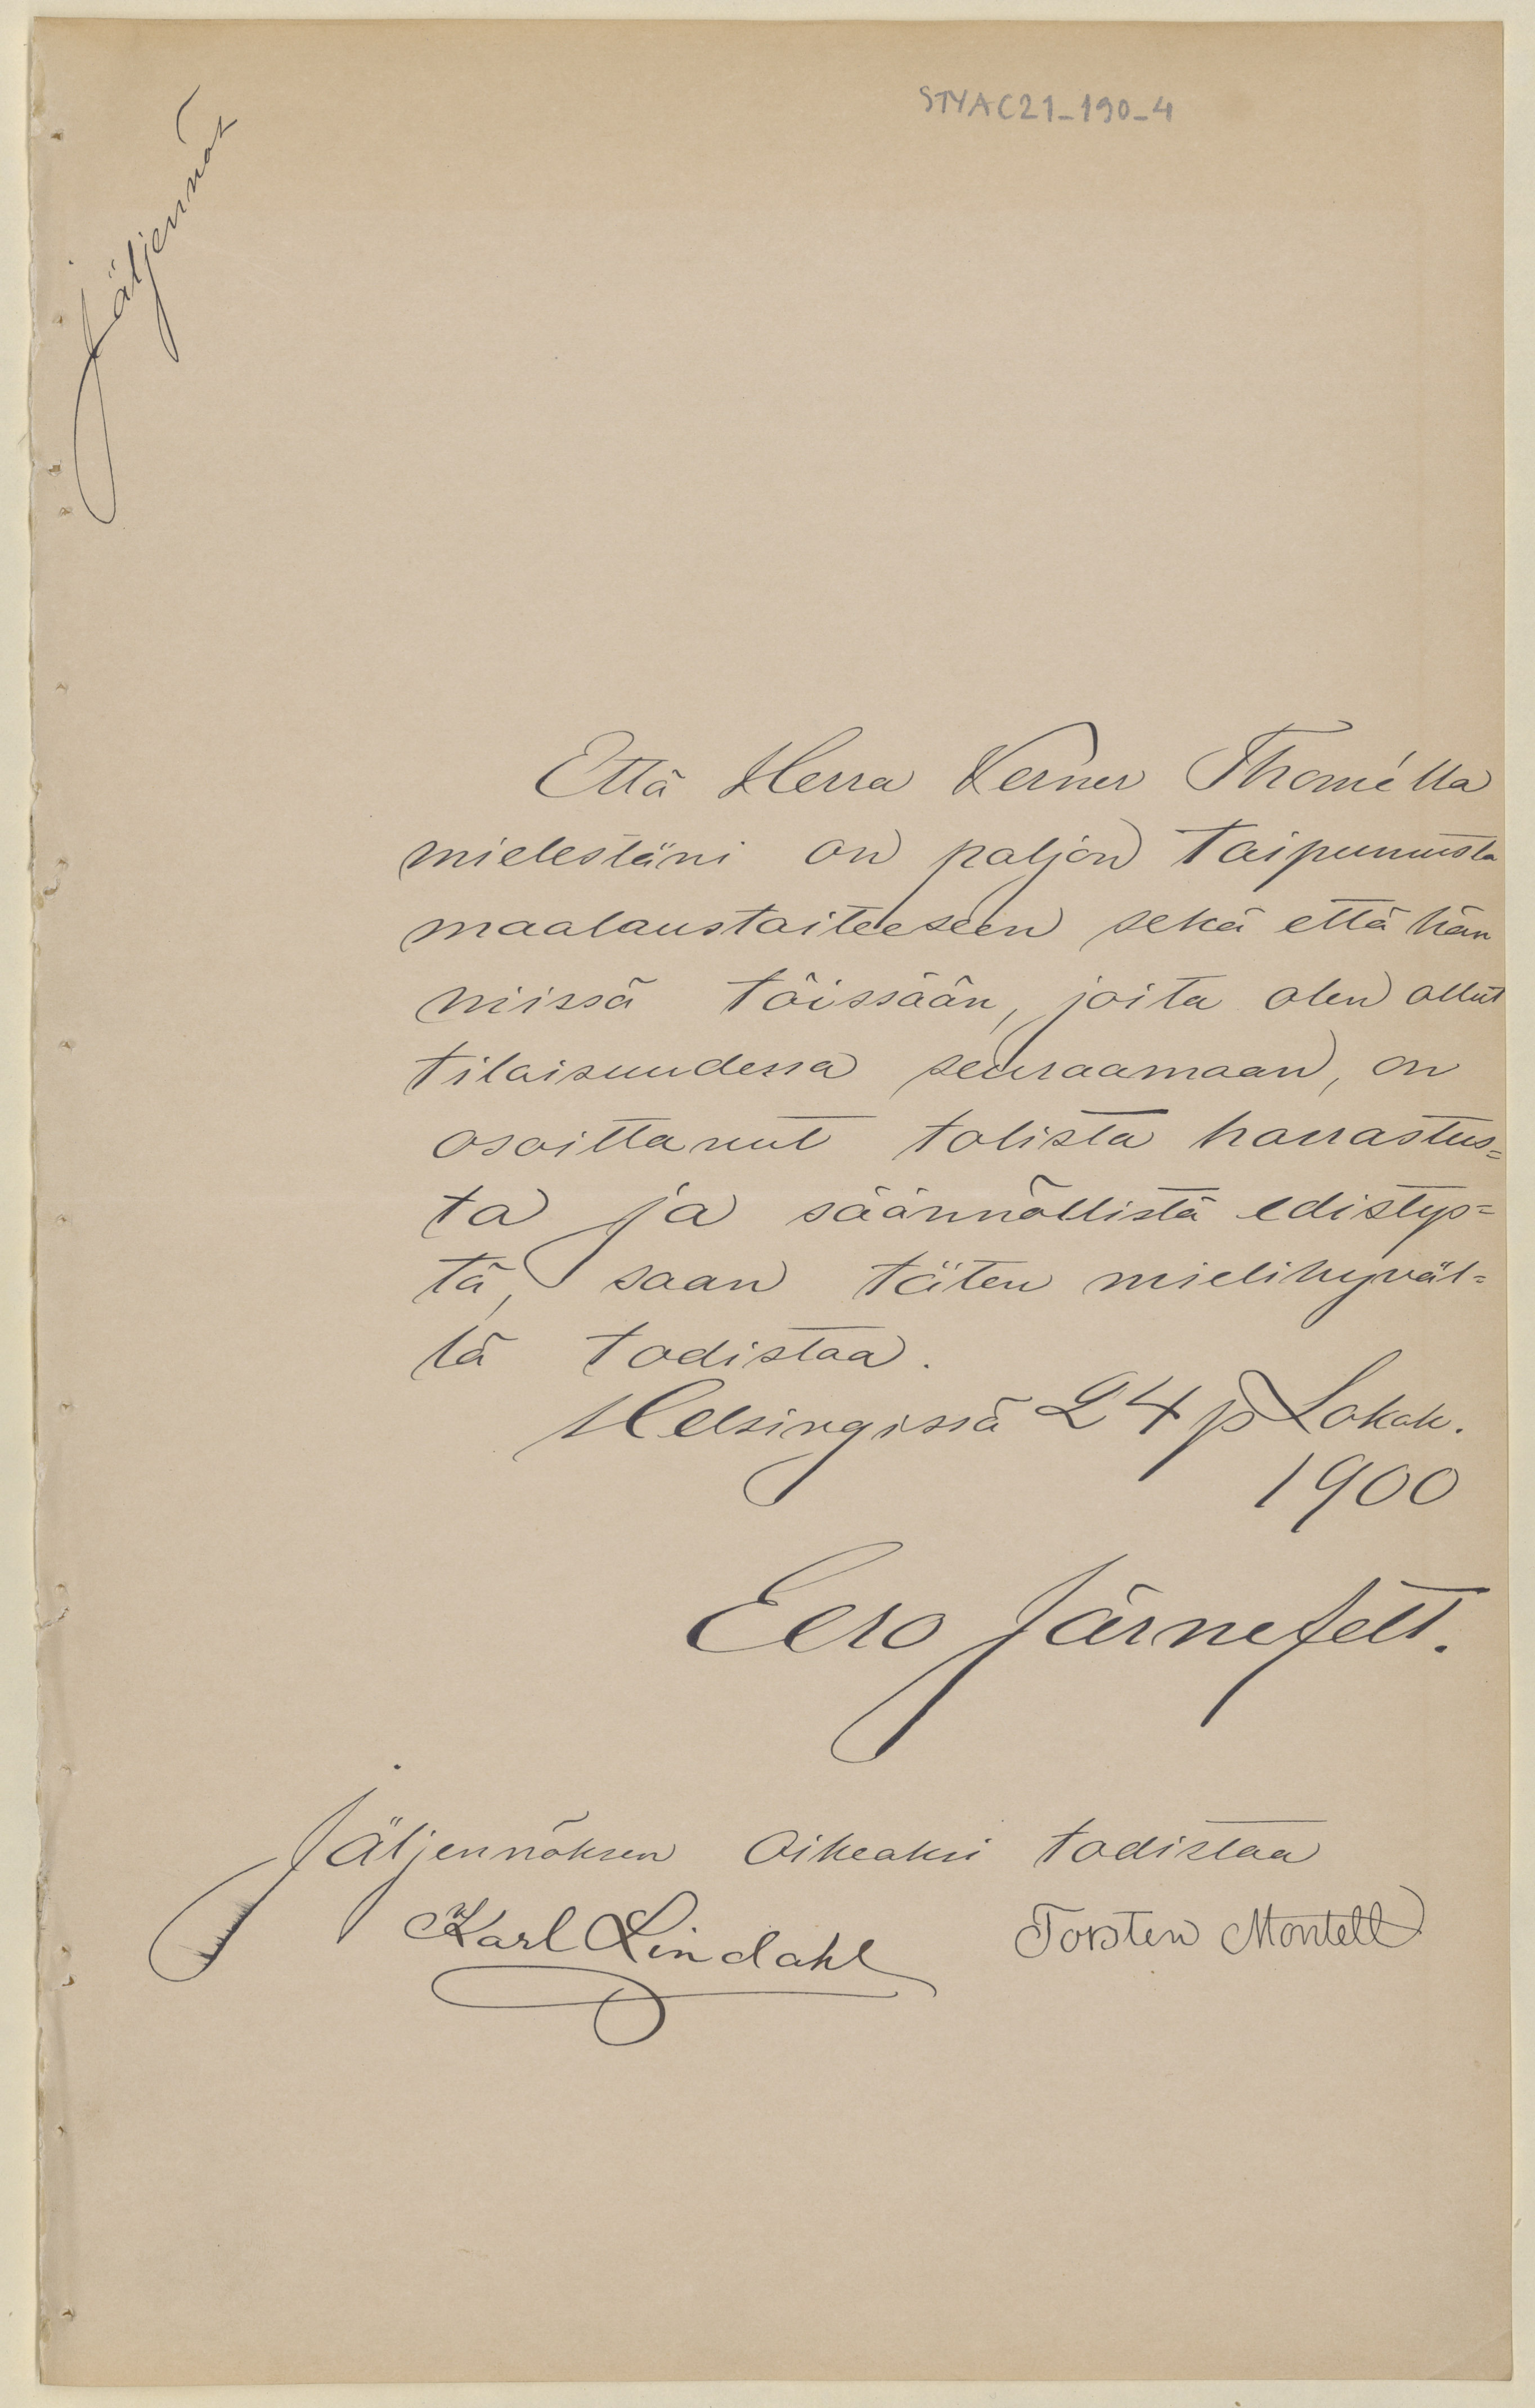 STYAC21-190-4
Jäljennöt
Että Herra Verner Thomé'lla
mielestäni on paljon taipumusta
maalaustaiteeseen sekä että hän
niissä töissään, joita olen ollut
tilaisuudessa seuraamaan, on
osoittanut totista harrastus=
ta ja säännöllistä edistys=
tä, saan täten mielihyväl=
lä todistaa.
Helsingissä 24 p Lokak.
1900
Eero Järnefelt.
Jäljennöksen oikeaksi todistaa
Karl Lindahl Torsten Montell